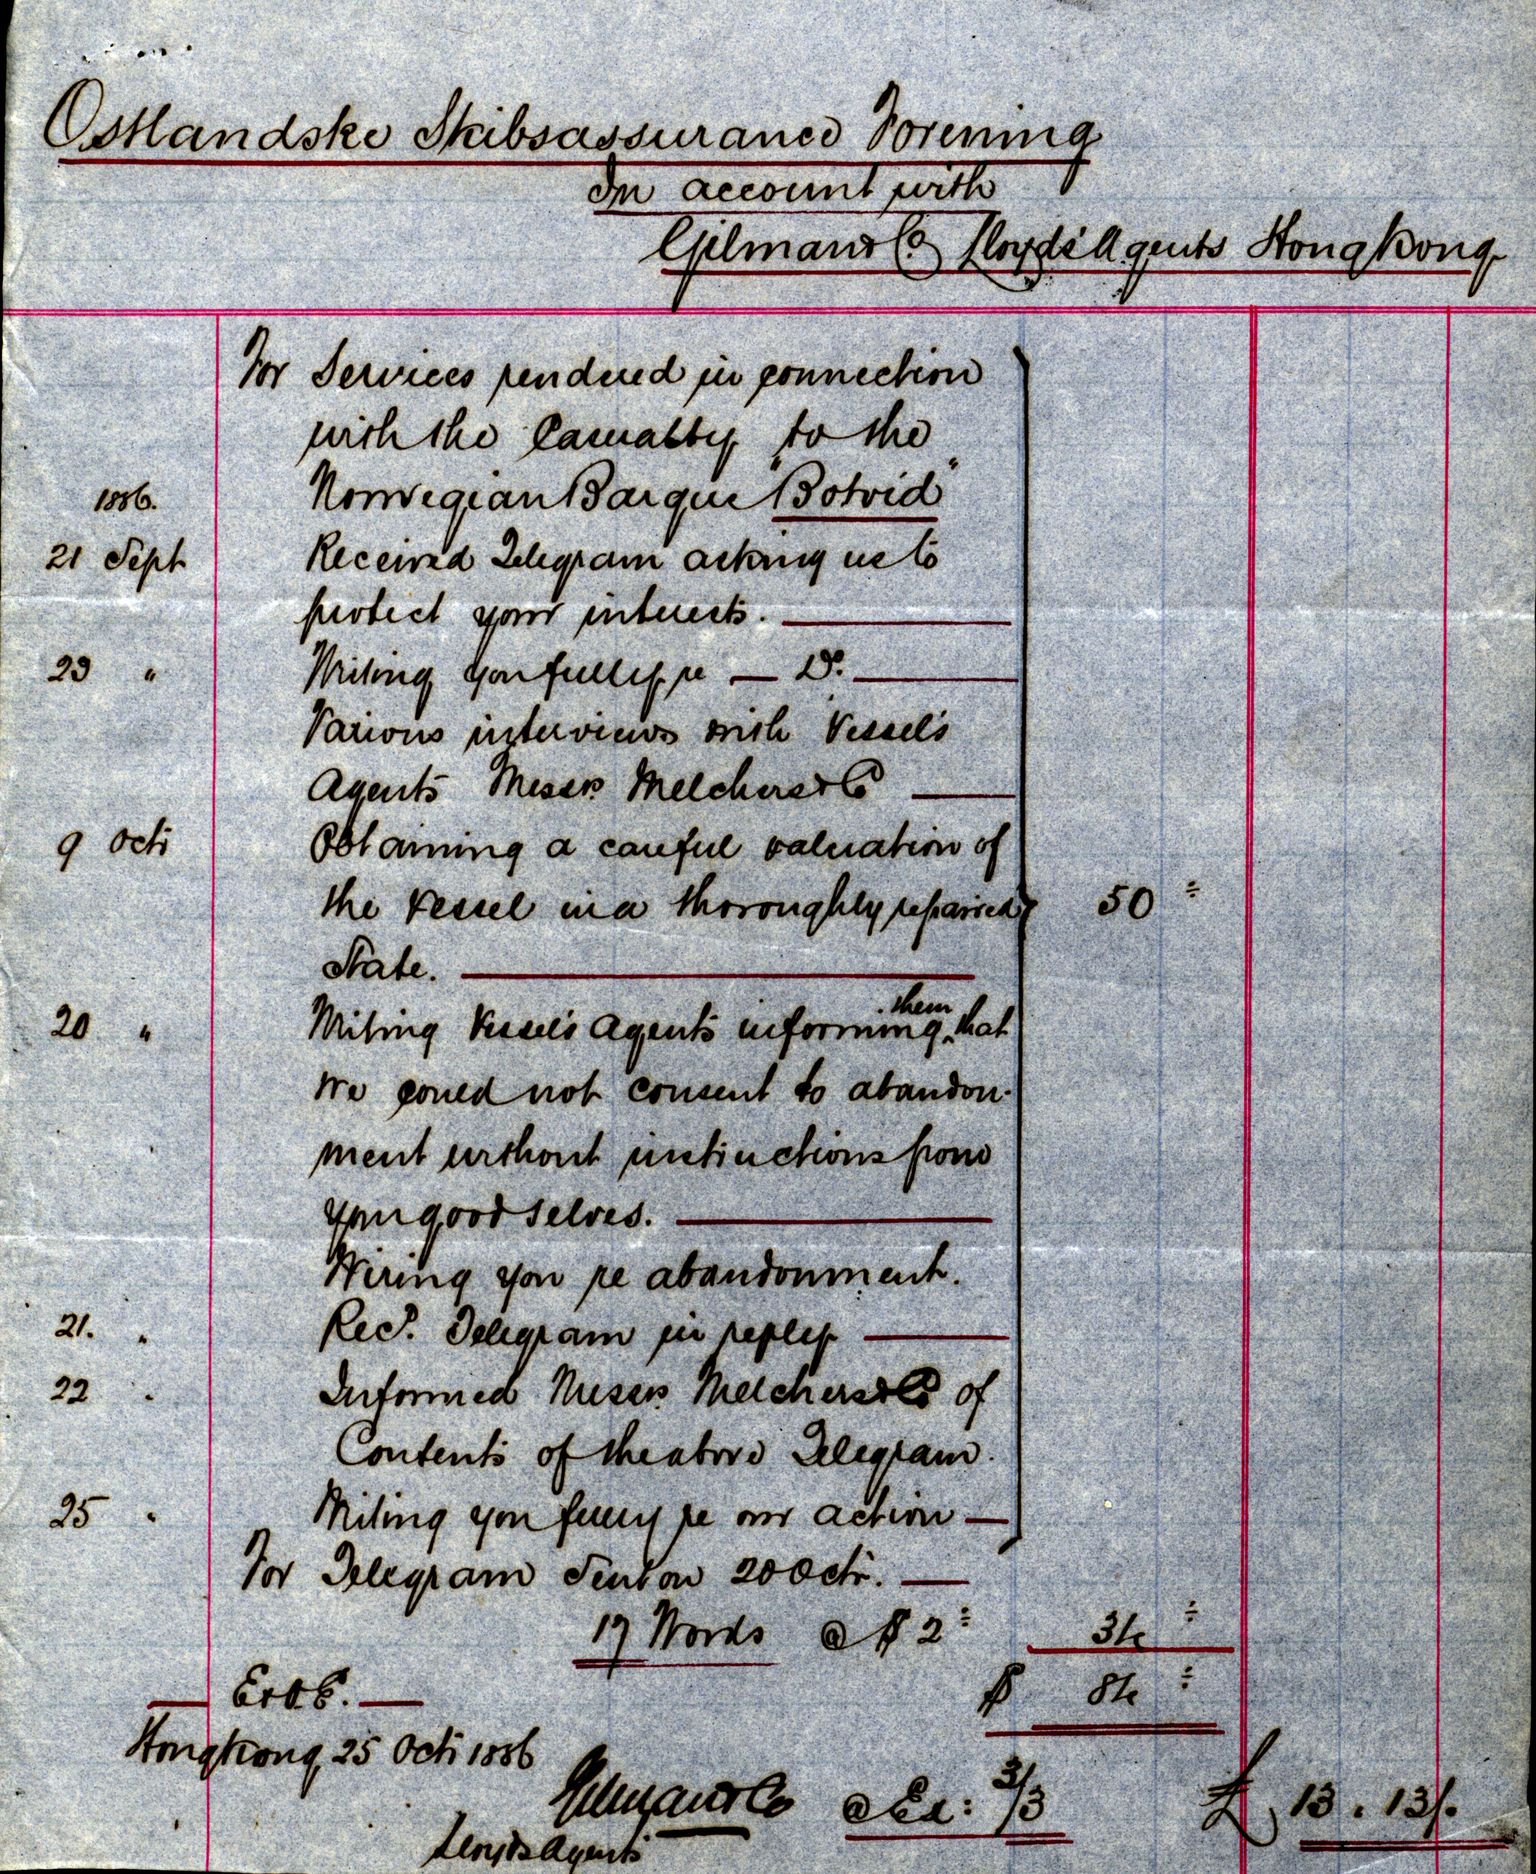 Ostlandske Skibsassurance Forening
In account with
Gilman & Co. Lloyds' Agents Hongkong
For Services rendered in connection
with the Casualty to the
1886. Norwegian Barque "Botvid"
21 Sept Received Telegram asking us to
protect your interests.
23 " Writing you fully re — Do.
Various interviews with Vessel's
Agents Messrs Melchers & Co
9 Octr Obtaining a careful valuation of
the Vessel in a thoroughly repaired 50 ÷
State.
20 " Writing Vessel's Agents informing them that
we could not consent to abandon-
ment without instructions from
your good selves.
Wiring you re abandonment.
21. " Recd. Telegram in reply
22 " Informed Messrs Melchers & Co of
Contents of the above Telegram.
25 " Writing you fully re our action
For Telegram Sent on 20 Octr.
17 Words @ $ 2 ÷ 34 ÷
E & O E. $ 84 ÷
Hongkong, 25 Octr 1886
Gilman & Co @ Ex: 3/3 £ 13.13/.
Lloyds Agents